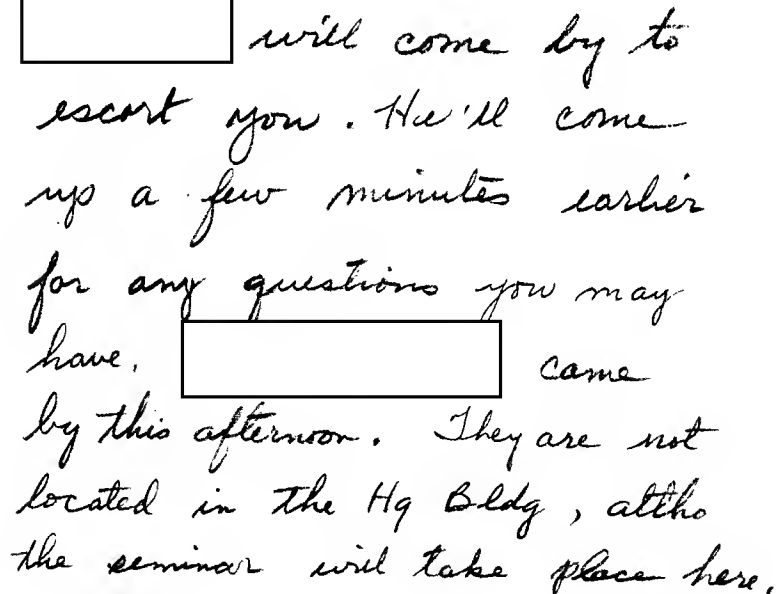 will come by to
escort you. He'll come
up a few minutes earlier
for any questions you may
have. came
by this afternoon. They are not
located in the Hq Bldg, altho
the seminar will take place here.